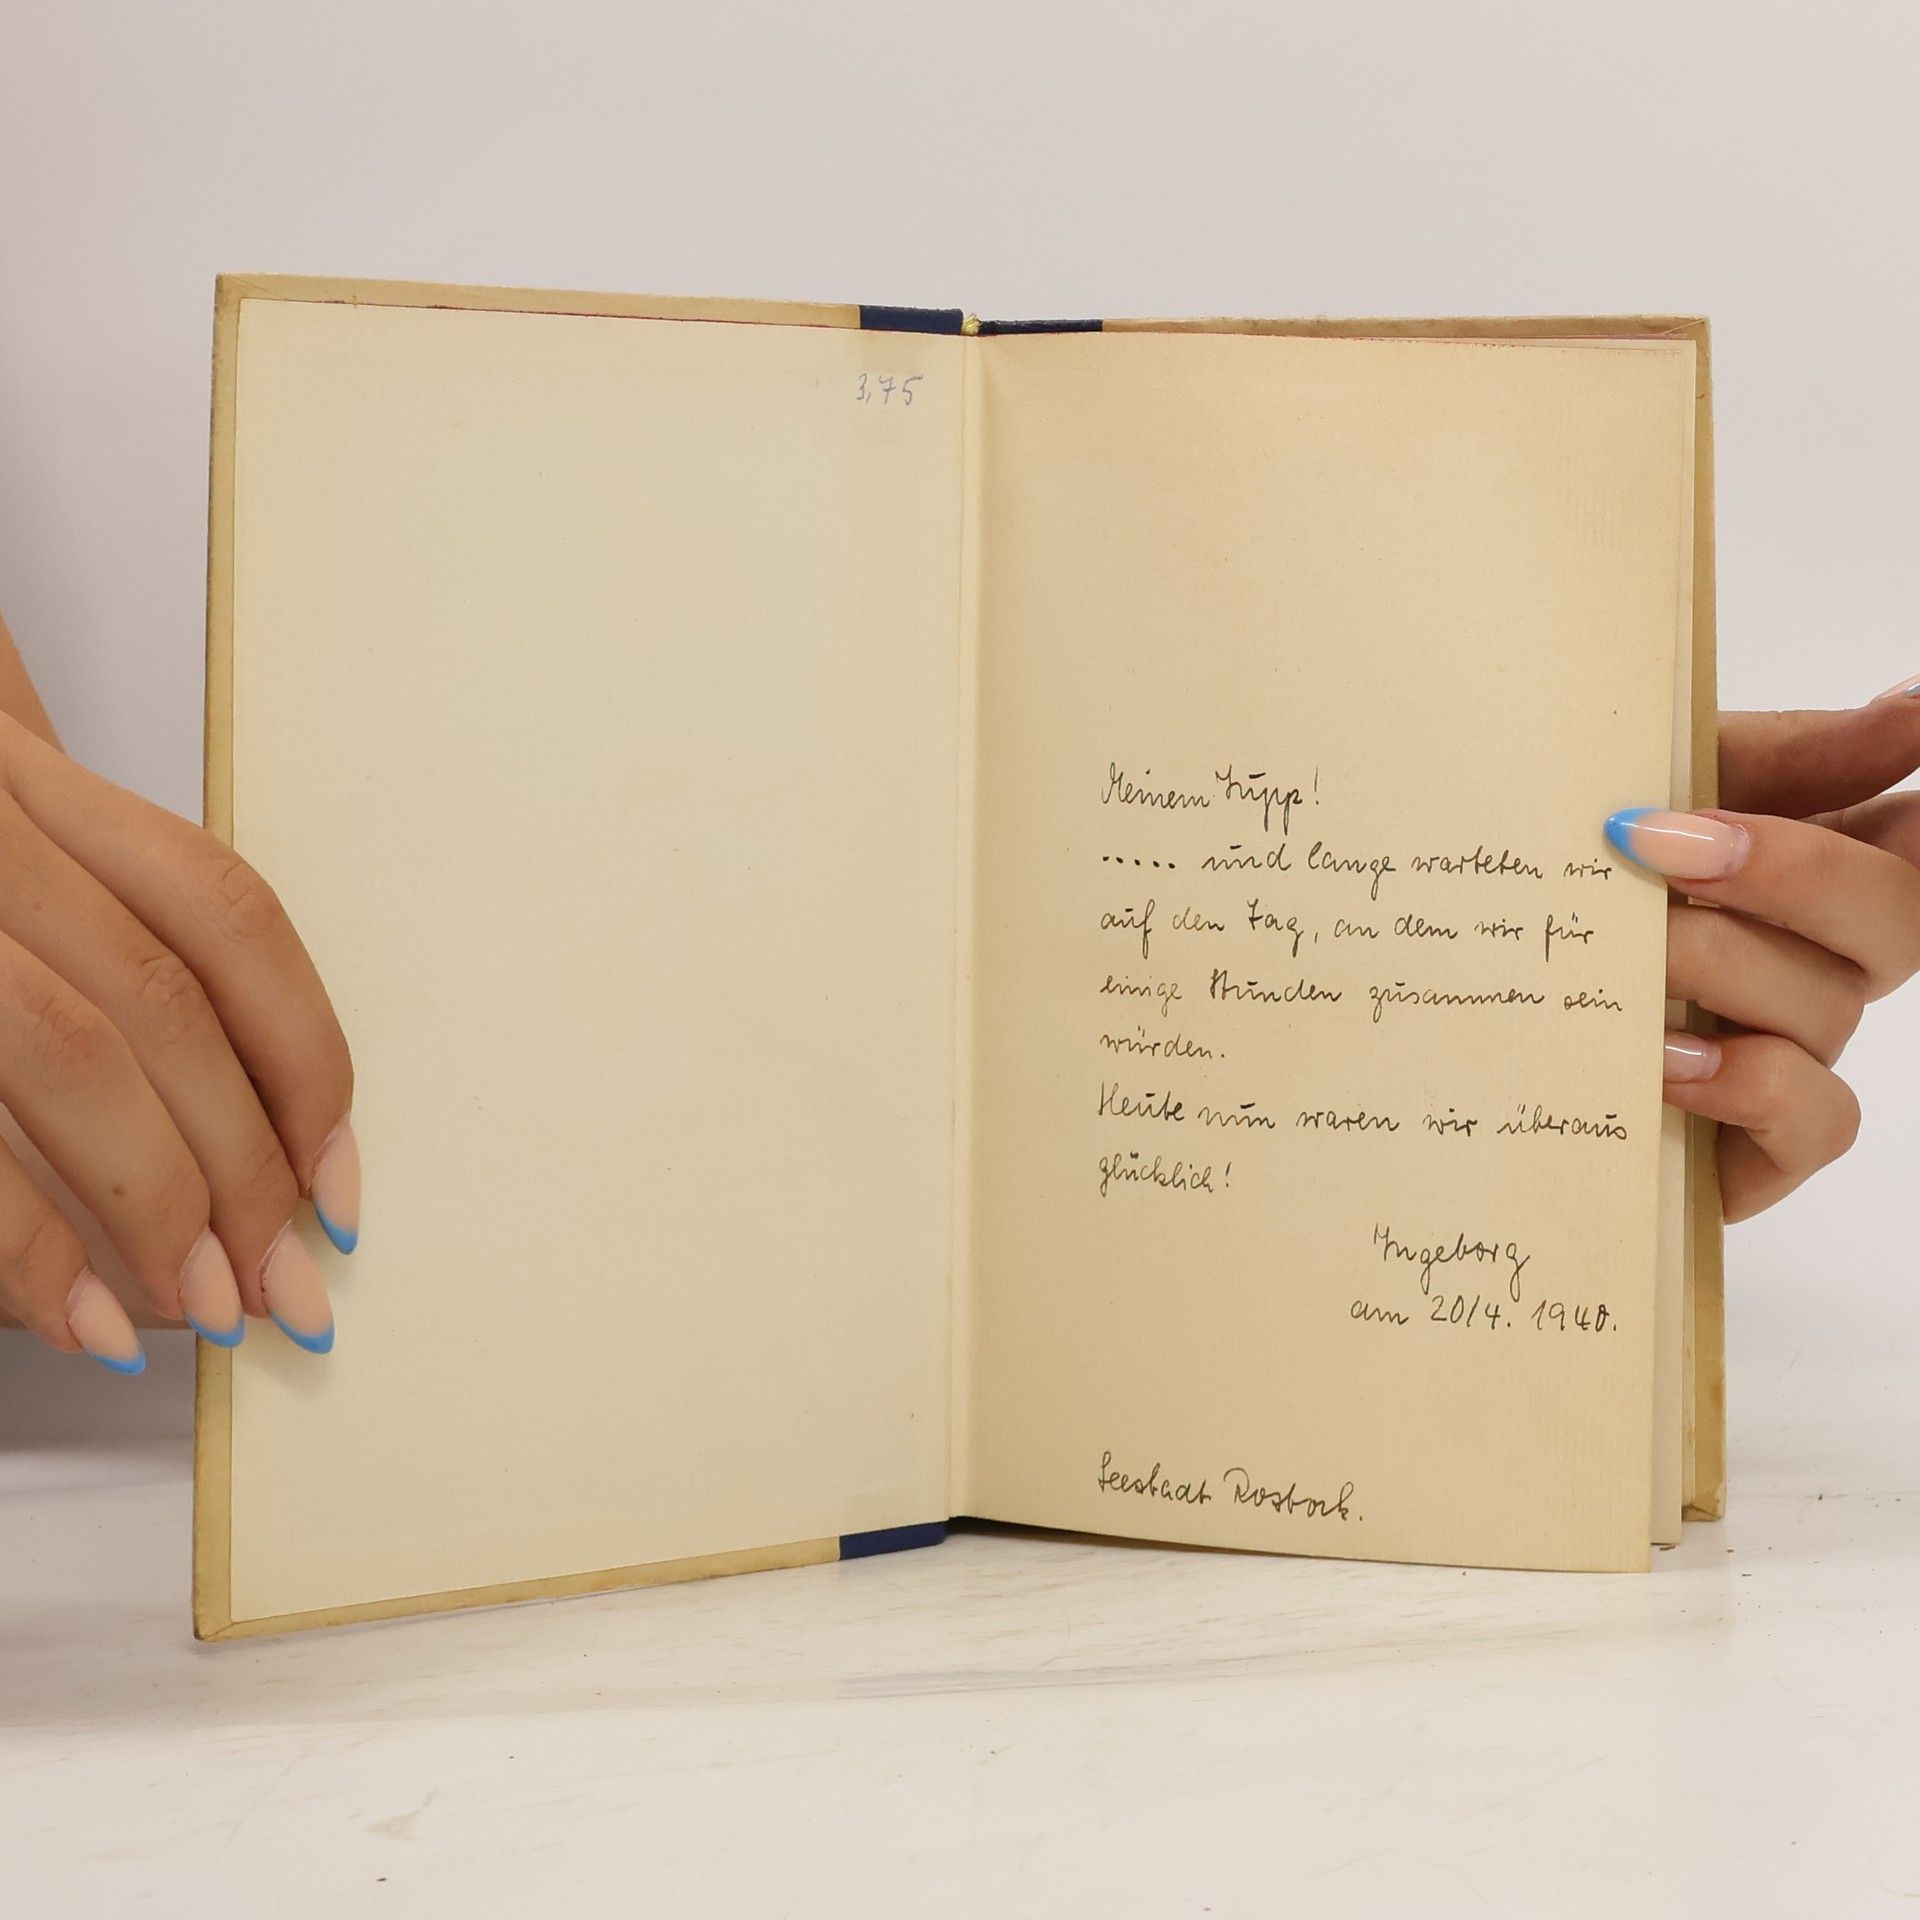 3,75
Meinem Jupp!
..... und lange warteten wir
auf den Tag, an dem wir für
einige Stunden zusammen sein
würden.
Heute nun waren wir überaus
glücklich!
Ingeborg
am 20/4. 1940.
Seestadt Rostock.